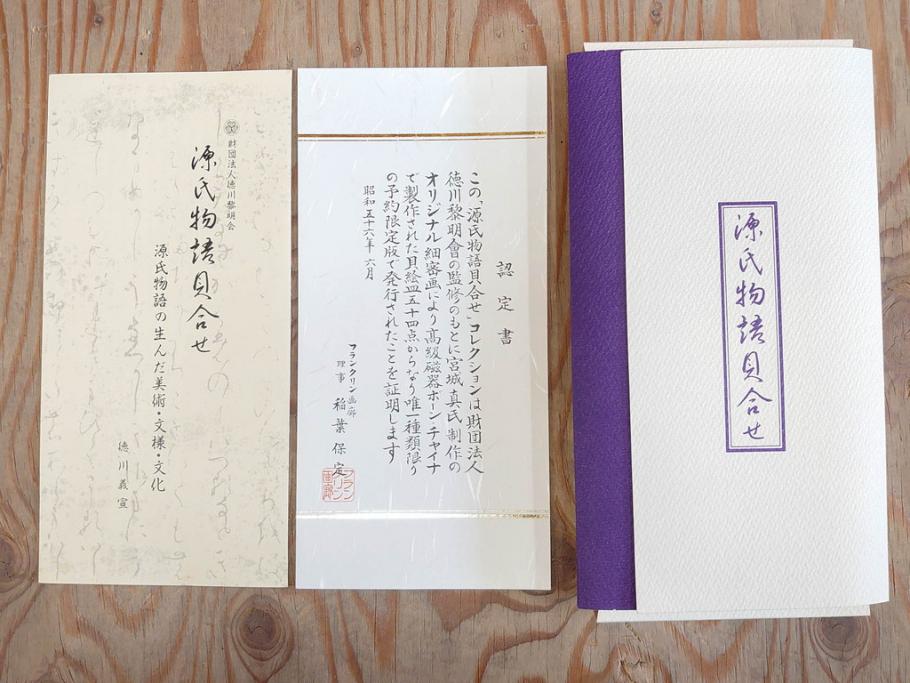 財団法人徳川黎明会
源氏物語貝合せ
源氏物語の生んだ美術・文様・文化
徳川義宣
認定書
この「源氏物語貝合せ」コレクションは財団法人
徳川黎明會の監修のもとに宮城真氏制作の
オリジナル細密画により高級磁器ボーンチャイナ
で製作された貝絵皿五十四点からなり唯一種類限り
の予約限定版で発行されたことを証明します
昭和五十六年六月
フランクリン画廊
理事 稲葉保定
フランクリン画廊
源氏物語貝合せ